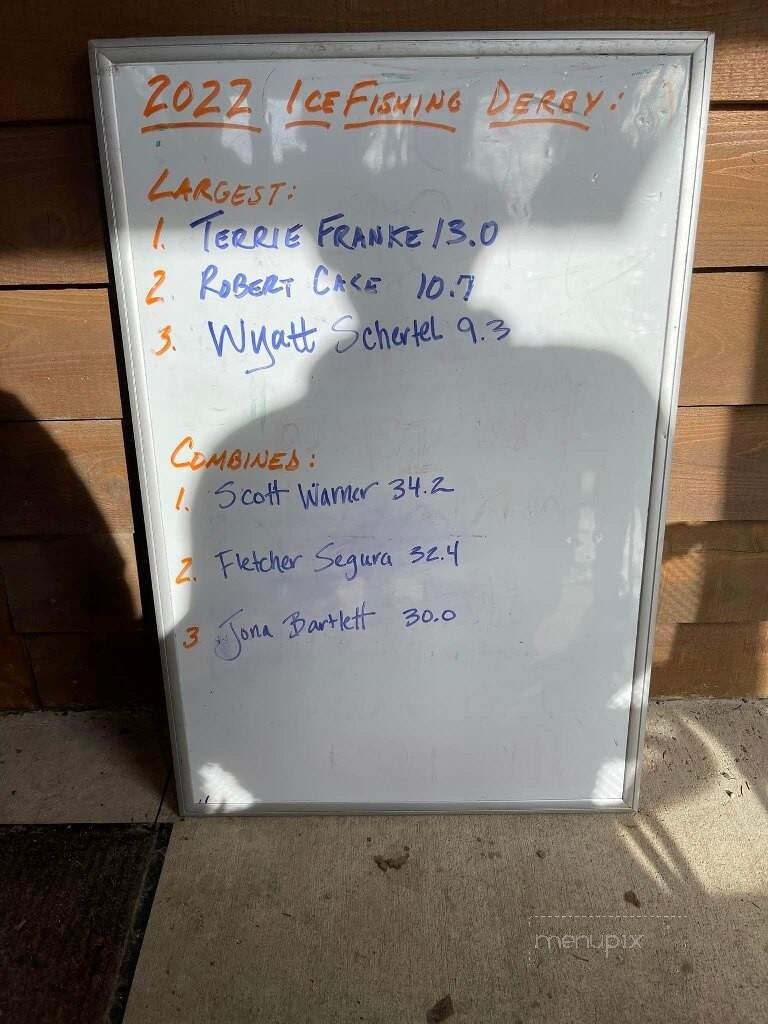 2022 ICE FISHING DERBY:
LARGEST:
1. TERRIE FRANKE 13.0
2 ROBERT CASE 10.7
3. Wyatt Schertel 9.3
COMBINED:
1. Scott Warner 34.2
2. Fletcher Segura 32.4
3 Jona Bartlett 30.0
menupix